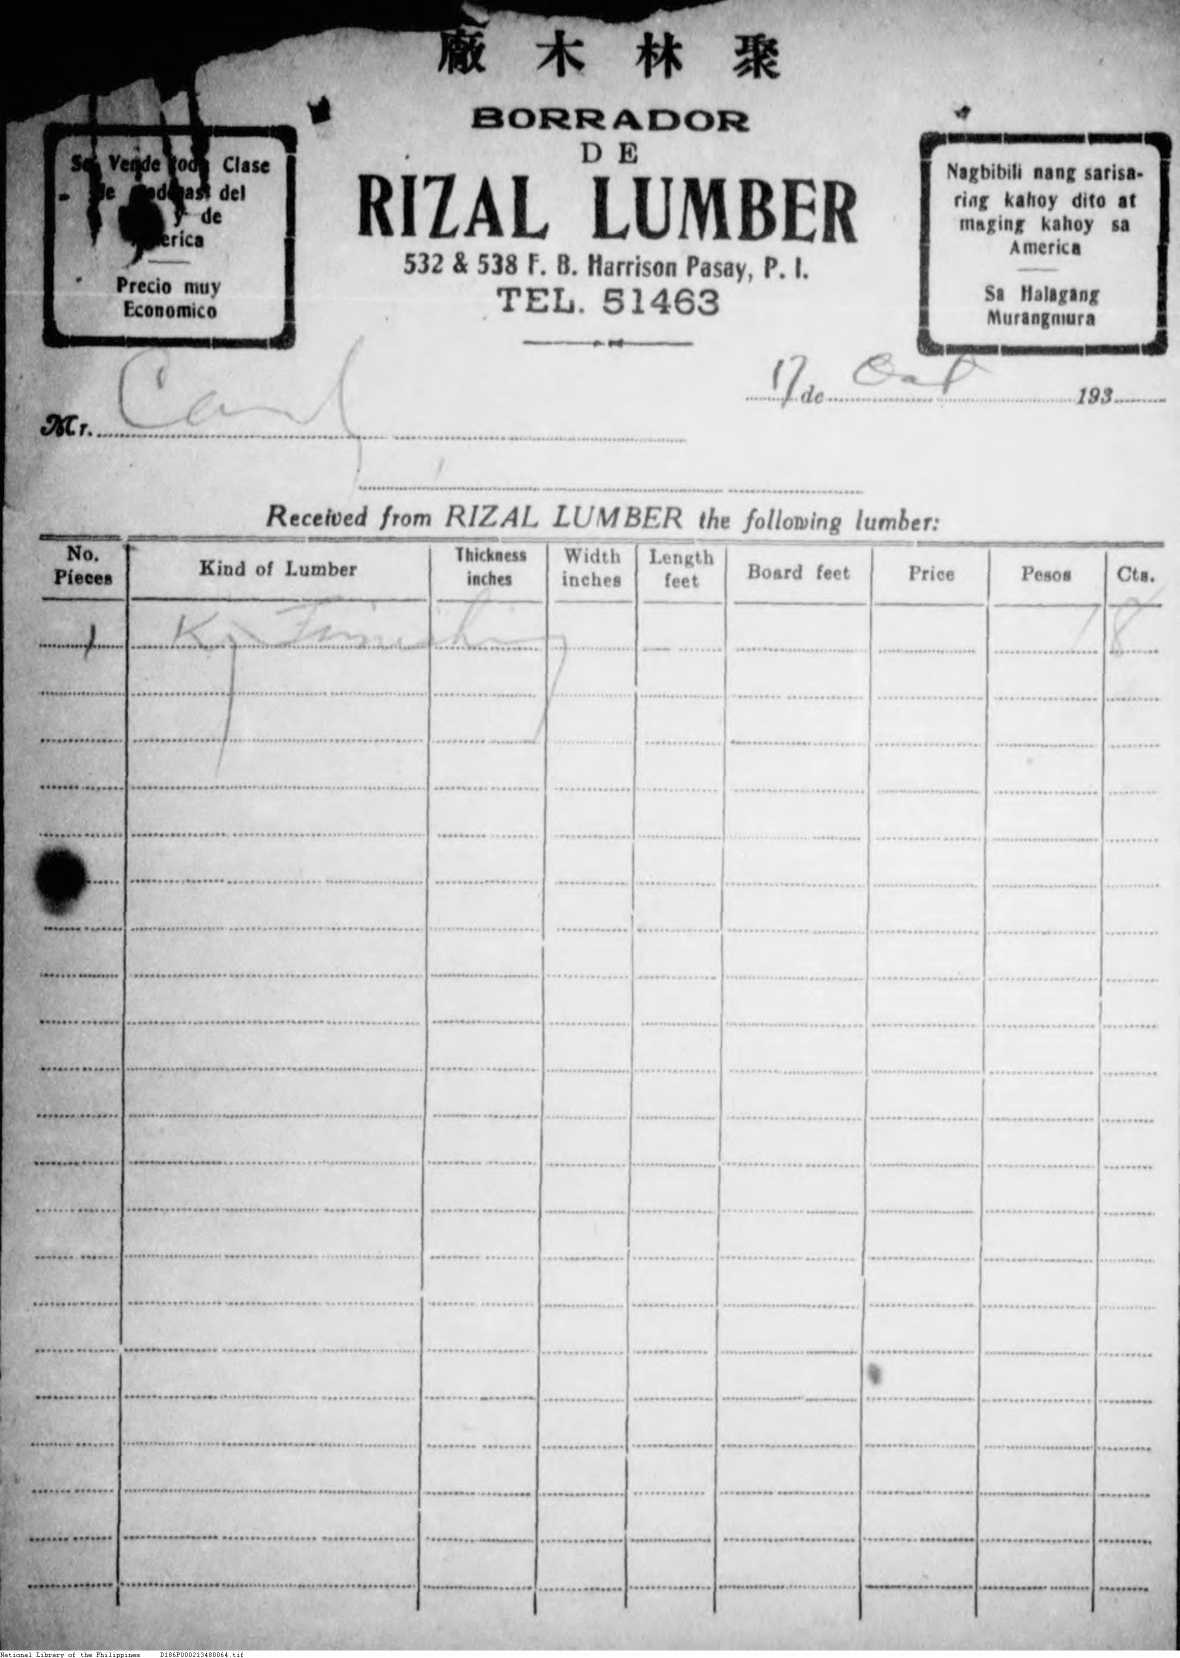 廠木林聚
BORRADOR
DE
RIZAL LUMBER
532 & 538 F. B. Harrison Pasay, P. I.
TEL. 51463
Se Vende Clase
de del
y de
Precio muy
Economico
Nagbibili nang sarisa-
ring kahoy dito at
maging kahoy sa
America
Sa Halagang
Murangmura
17 de Oct 193
Mr.
Received from RIZAL LUMBER the following lumber:
No. Pieces Kind of Lumber Thickness inches Width inches Length feet Board feet Price Pesos Cts.
1 Finishing
National Library of the Philippines D186P000213480064.tif